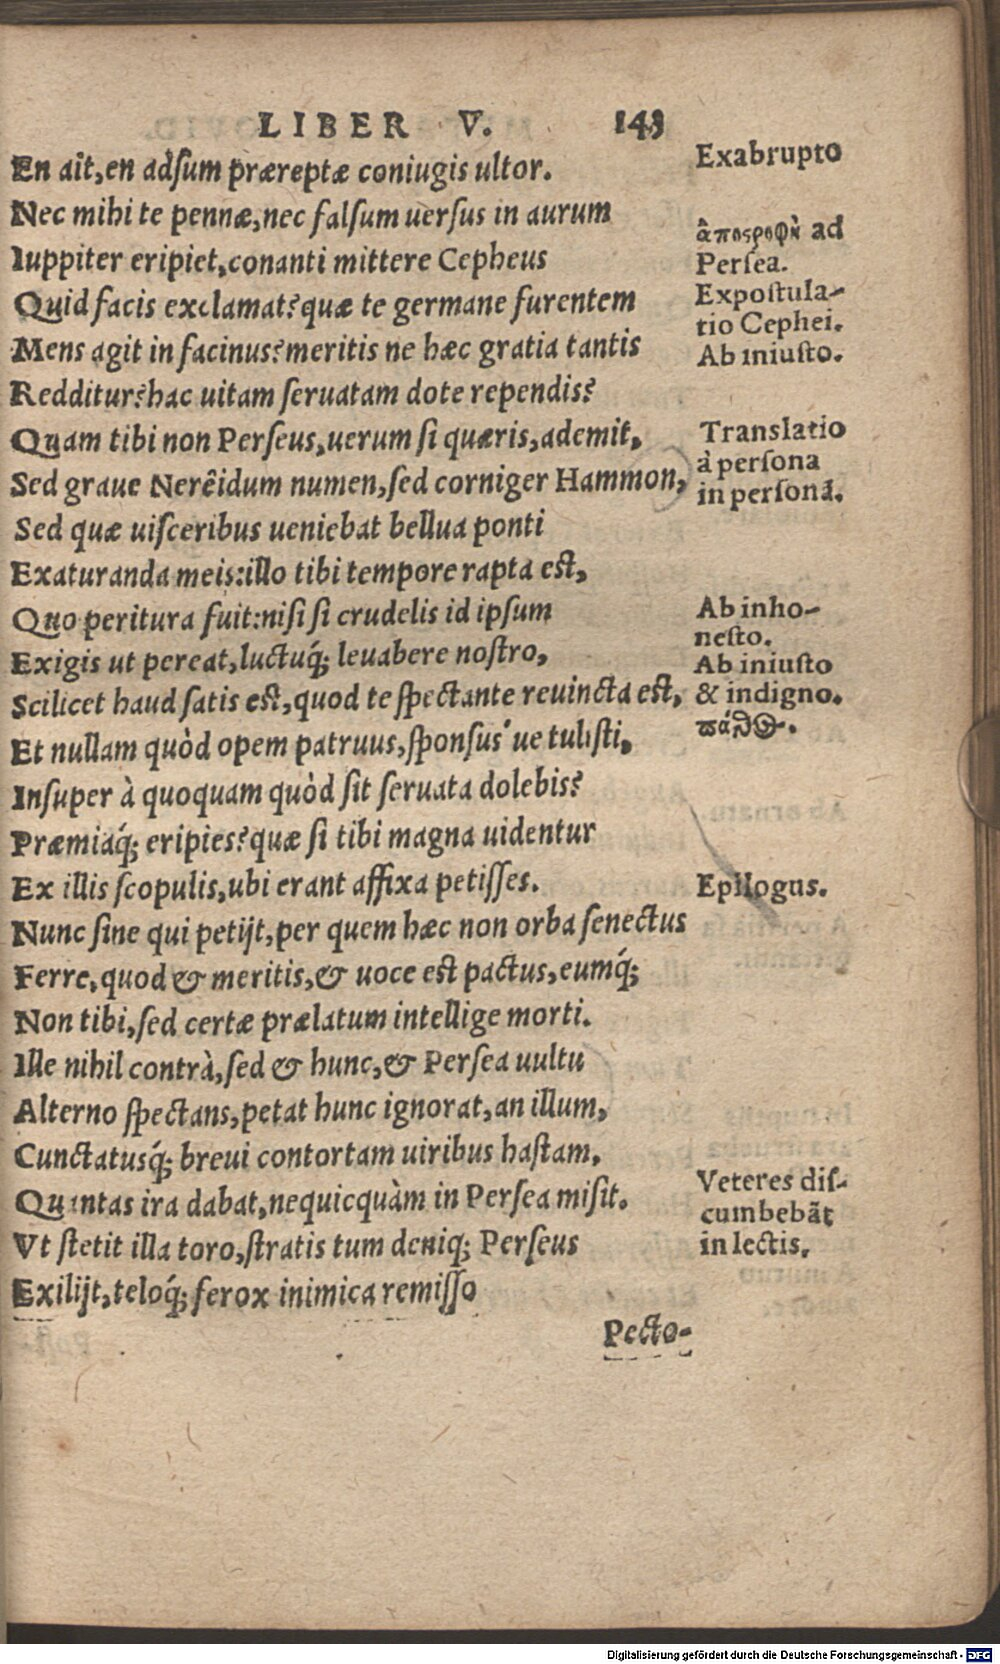 LIBER V. 143
En ait,en adſum præreptæ coniugis ultor.
Exabrupto
Nec mihi te pennæ,nec falſum uerſus in aurum
Iuppiter eripiet,conanti mittere Cepheus
ἀποςροφὴ ad
Perſea.
Quid facis exclamat?quæ te germane furentem
Expoſtula-
tio Cephei.
Mens agit in facinus?meritis ne hæc gratia tantis
Ab iniuſto.
Redditur?hac uitam ſeruatam dote rependis?
Quam tibi non Perſeus,uerum ſi quæris,ademit,
Translatio
à perſona
in perſonã.
Sed graue Nerêidum numen,ſed corniger Hammon,
Sed quæ uiſceribus ueniebat bellua ponti
Exaturanda meis:illo tibi tempore rapta eſt,
Quo peritura fuit:niſi ſi crudelis id ipſum
Ab inho-
neſto.
Exigis ut pereat,luctuq́; leuabere noſtro,
Ab iniuſto
& indigno.
Scilicet haud ſatis eſt,quod te ſpectante reuincta eſt,
πάθος.
Et nullam quòd opem patruus,ſponſus'ue tuliſti,
Inſuper à quoquam quòd ſit ſeruata dolebis?
Præmiaq́; eripies?quæ ſi tibi magna uidentur
Ex illis ſcopulis,ubi erant affixa petiſſes.
Epilogus.
Nunc ſine qui petijt,per quem hæc non orba ſenectus
Ferre,quod & meritis,& uoce est pactus,eumq́;
Non tibi,ſed certæ prælatum intellige morti.
Ille nihil contrà,ſed & hunc,& Perſea uultu
Alterno ſpectans,petat hunc ignorat,an illum,
Cunctatusq́; breui contortam uiribus haſtam,
Quantas ira dabat,nequicquàm in Perſea miſit.
Veteres diſ-
cumbebãt
in lectis.
Vt ſtetit illa toro,ſtratis tum deniq; Perſeus
Exilijt,teloq́; ferox inimica remiſſo
Pecto-
Digitalisierung gefördert durch die Deutsche Forschungsgemeinschaft - DFG